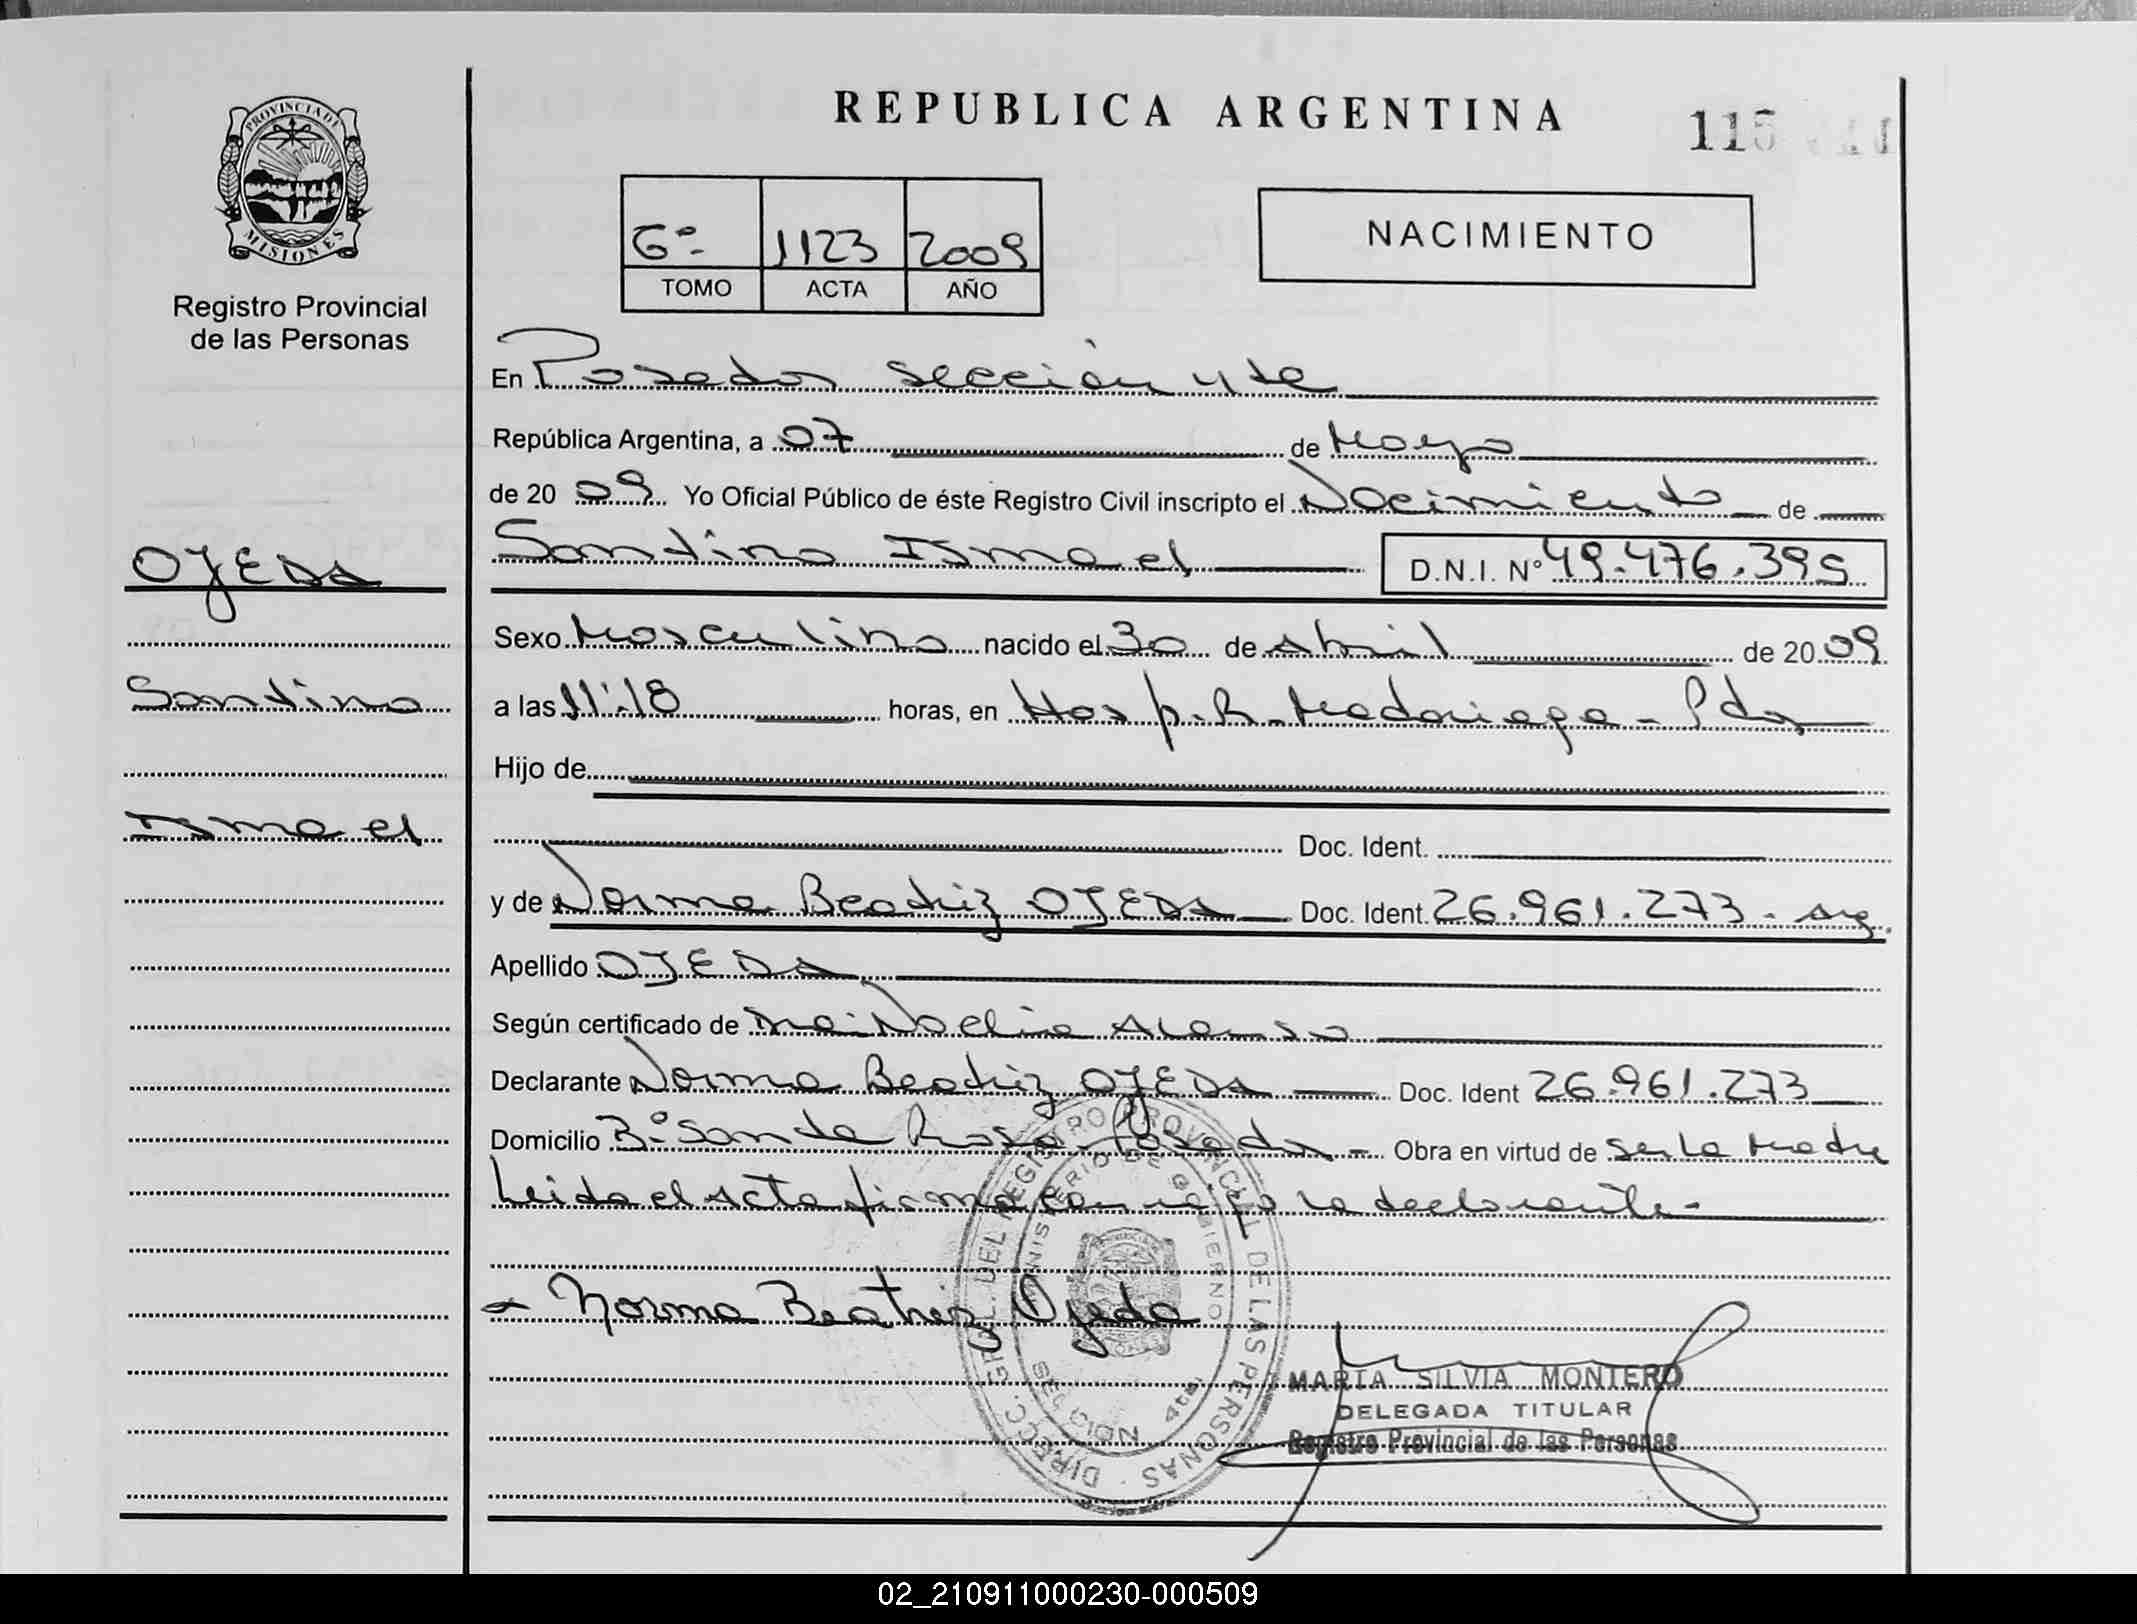 REPUBLICA ARGENTINA
115
PROVINCIA DE
MISIONES
Registro Provincial
de las Personas
6º- 1123 2009
TOMO ACTA AÑO
NACIMIENTO
En Posadas sección 4ta
República Argentina, a 07 de Mayo
de 20 09 Yo Oficial Público de éste Registro Civil inscripto el Nacimiento de
OJEDA
Santino Ismael D.N.I. Nº 49.476.395
Sexo Masculino nacido el 30 de Abril de 20 09
Santino
a las 11:18 horas, en Hosp. R. Madariaga - Pdas
Hijo de
Ismael
Doc. Ident.
y de Norma Beatriz OJEDA Doc. Ident. 26.961.273 - Arg.
Apellido OJEDA
Según certificado de Noelia Alonso
Declarante Norma Beatriz OJEDA Doc. Ident 26.961.273
Domicilio Bº Santa Rosa Posadas - Obra en virtud de ser la Madre
Leida el Acta firma conmigo la declarante -
Norma Beatriz Ojeda
DIRECC. GRAL. DEL REGISTRO PROVINCIAL DE LAS PERSONAS
MINISTERIO DE GOBIERNO
SECCION 4ta.
MARIA SILVIA MONTERO
DELEGADA TITULAR
Registro Provincial de las Personas
02_210911000230-000509